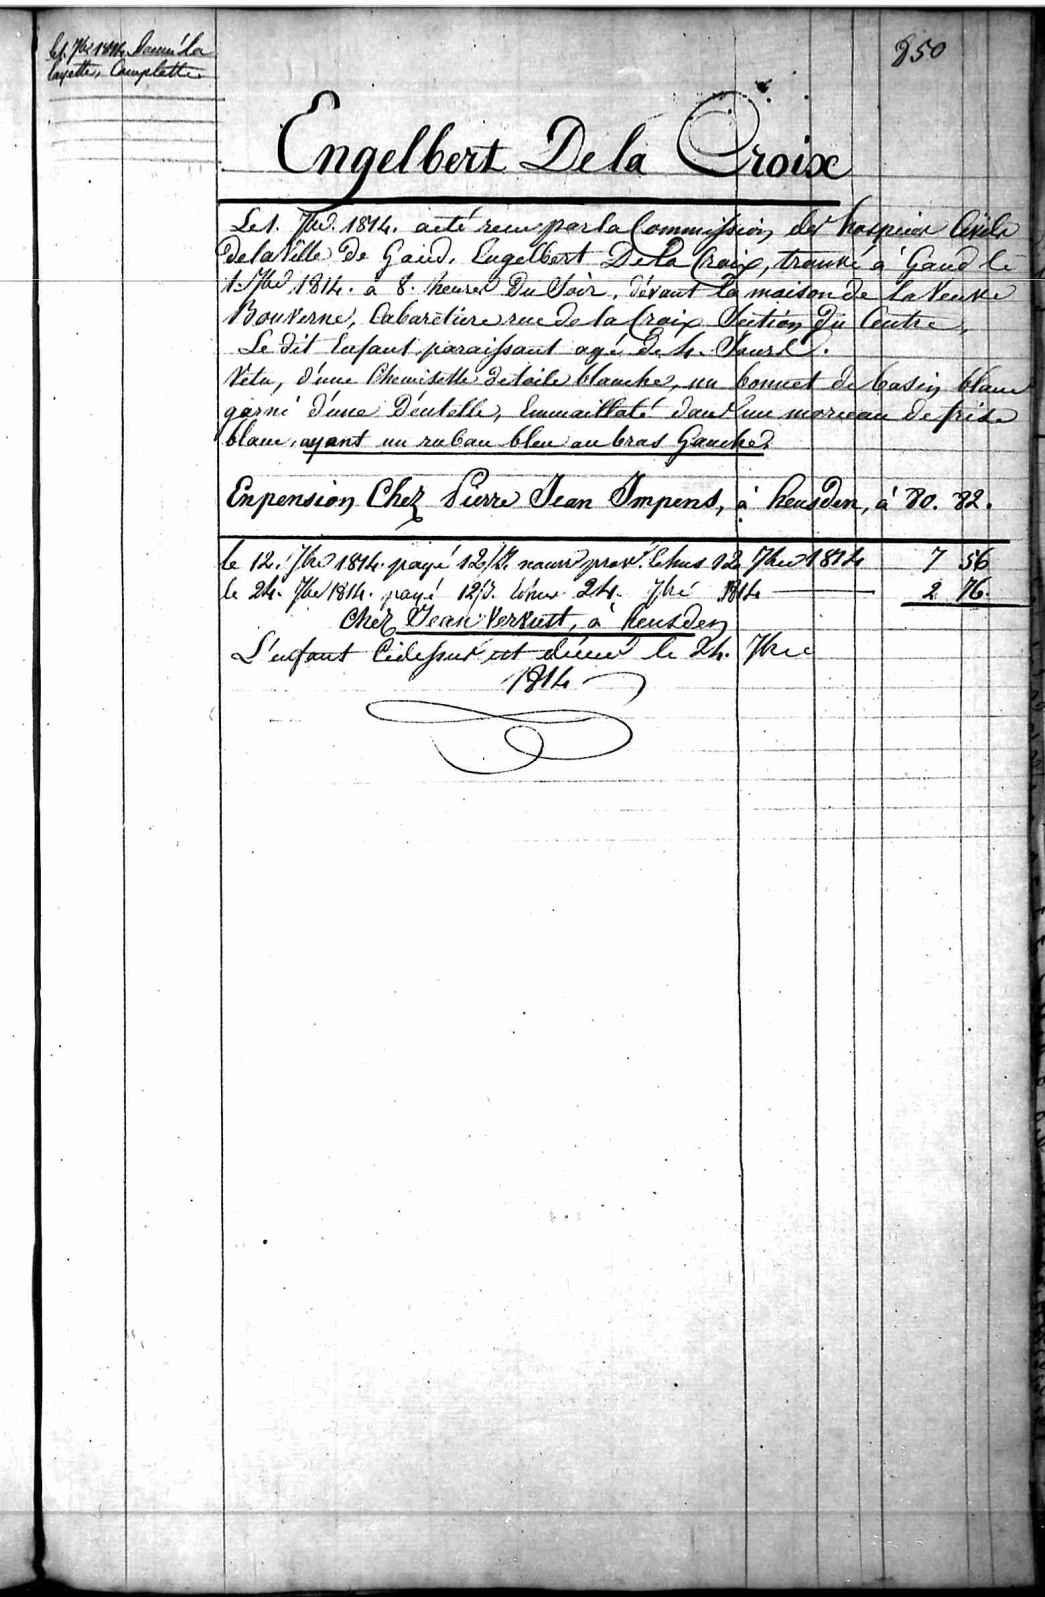 le 1. 7bre 1814. Donné la
layette, Complette.
850
Engelbert De la Croix
Le 1. 7bre. 1814. a été reçu par la Commission des hospices Civils
de la Ville de Gand, Engelbert De la Croix, trouvé à Gand le
1. 7bre 1814. à 8. heures Du Soir, devant la maison de la Veuve
Bouverne, Cabaretiere rue de la Croix Section Du Centre,
Le dit Enfant paraissant agé De 4. Jours.
Vetu, d'une Chemisette de toile blanche, un bonnet de basin blanc
garni d'une Dentelle, Emmailloté dans une morceau de frise
blanc, ayant un ruban bleu au bras Gauche.
En pension Chez Pierre Jean Impens, à heusden, à 80. 82.
le 12. 7bre 1814. payé 12/J. 12 7bre 1814 7 56
le 24. 7bre 1814. payé 12/J. 24. 7bré 1814 2 76
Chez Jean Vervust, à heusden
L'enfant Cidessus est décédé le 24. 7bre
1814